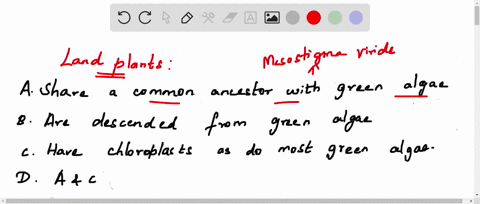 Mesostigma viride
Land plants:
A. Share a common ancestor with green algae
B. Are descended from green algae
C. Have chloroplasts as do most green algae.
D. A & C